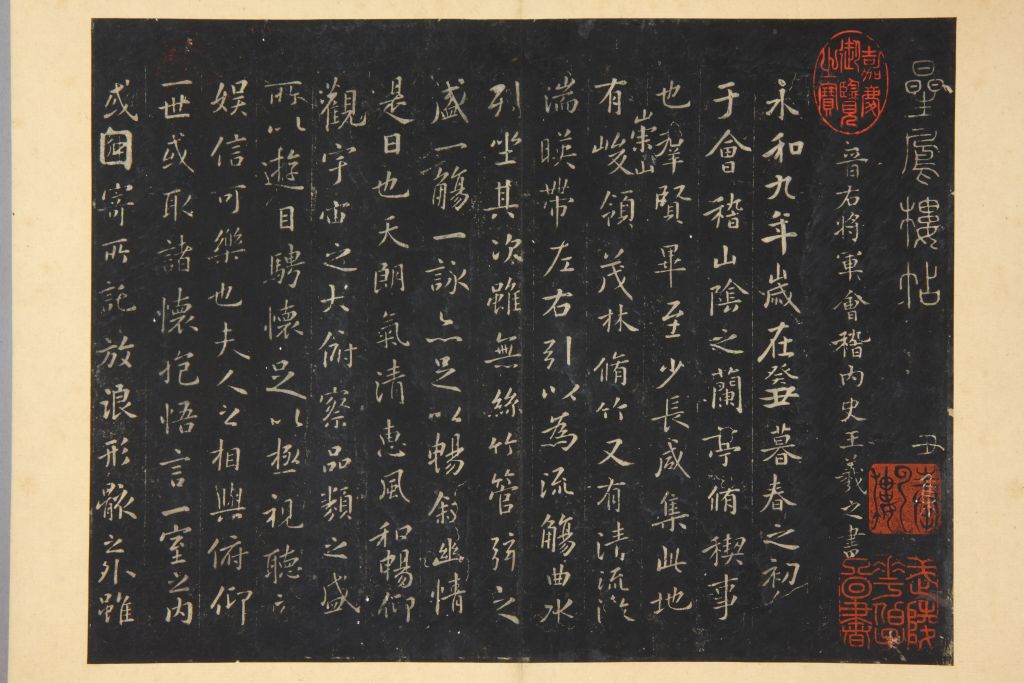 曐鳳樓帖
丑
嘉慶御覽之寶
晉右將軍會稽內史王羲之書
永和九年歲在癸丑暮春之初
于會稽山陰之蘭亭脩稧事
也羣賢畢至少長咸集此地
有崇山峻領茂林脩竹又有清流激
湍暎帶左右引以為流觴曲水
列坐其次雖無絲竹管弦之
盛一觴一詠亦足以暢敘幽情
是日也天朗氣清惠風和暢仰
觀宇宙之大俯察品類之盛
所以遊目騁懷足以極視聽之
娛信可樂也夫人之相與俯仰
一世或取諸懷抱悟言一室之內
或因寄所託放浪形骸之外雖